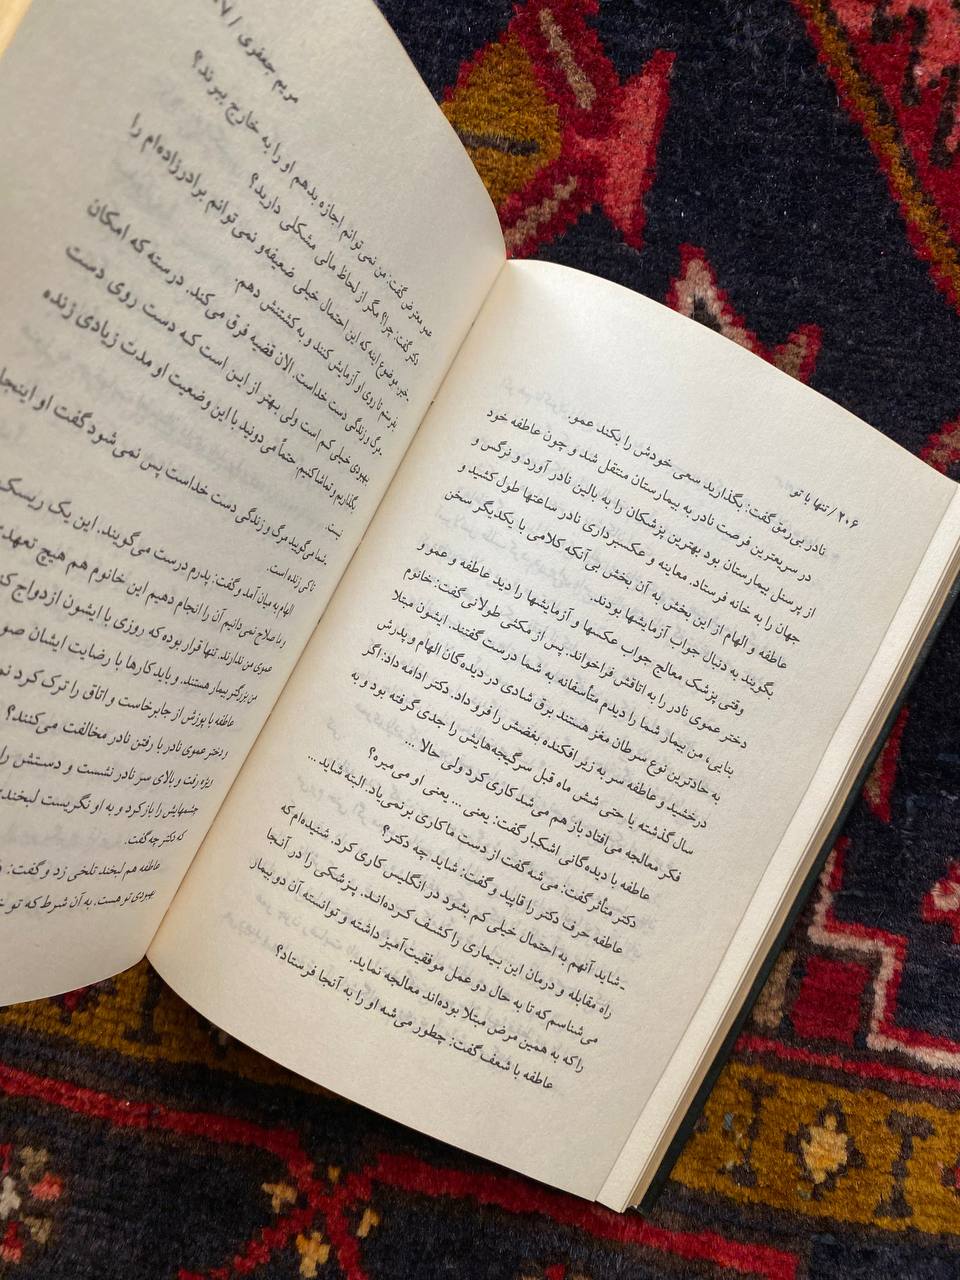 ۲۰۶ / تنها با تو
نادر بی‌رمق گفت: بگذارید سعی خودش را بکند عمو.
در سریعترین فرصت نادر به بیمارستان منتقل شد و چون عاطفه خود
از پرسنل بیمارستان بود بهترین پزشکان را به بالین نادر آورد و نرگس و
جهان را به خانه فرستاد. معاینه و عکسبرداری نادر ساعتها طول کشید و
عاطفه و الهام از این بخش به آن بخش بی‌آنکه کلامی با یکدیگر سخن
بگویند به دنبال جواب آزمایشها بودند.
وقتی پزشک معالج جواب عکسها و آزمایشها را دید عاطفه و عمو و
دختر عموی نادر را به اتاقش فراخواند. پس از مکثی طولانی گفت: خانوم
بنایی، من بیمار شما را دیدم متأسفانه به شما درست گفتند. ایشون مبتلا
به حادترین نوع سرطان مغز هستند برق شادی در دیده‌گان الهام و پدرش
درخشید و عاطفه سر به زیر افکنده بغضش را فرو داد. دکتر ادامه داد: اگر
سال گذشته یا حتی شش ماه قبل سرگیجه‌هایش را جدی گرفته بود و به
فکر معالجه می‌افتاد باز هم می‌شد کاری کرد ولی حالا ...
عاطفه با دیده‌گانی اشکبار گفت: یعنی ... یعنی او می‌میره؟
دکتر متأثر گفت: می‌شه گفت از دست ما کاری برنمی‌یاد. البته شاید ...
عاطفه حرف دکتر را قاپید و گفت: شاید چه دکتر؟
ـ شاید آنهم به احتمال خیلی کم بشود در انگلیس کاری کرد. شنیده‌ام که
راه مقابله و درمان این بیماری را کشف کرده‌اند. پزشکی را در آنجا
می‌شناسم که تا به حال دو عمل موفقیت‌آمیز داشته و توانسته آن دو بیمار
را که به همین مرض مبتلا بوده‌اند معالجه نماید.
عاطفه با شعف گفت: چطور می‌شه او را به آنجا فرستاد؟
مریم جعفری /
عمو معترض گفت: من نمی‌توانم اجازه بدهم او را به خارج ببرند؟
دکتر گفت: چرا؟ مگر از لحاظ مالی مشکلی دارید؟
ـ خیر. موضوع اینه که این احتمال خیلی ضعیفه و نمی‌توانم برادرزاده‌ام را
بفرستم تا روی او آزمایش کنند و به کشتنش دهم.
ـ مرگ و زندگی دست خداست. الان قضیه فرق می‌کند. درسته که امکان
بهبودی خیلی کم است ولی بهتر از این است که دست روی دست
بگذاریم و تماشا کنیم. حتماً می‌دونید با این وضعیت او مدت زیادی زنده
نیست.
ـ شما می‌گویید مرگ و زندگی دست خداست پس نمی‌شود گفت او اینجا
تا کی زنده است.
الهام به میان آمد و گفت: پدرم درست می‌گویند. این یک ریسک
و ما صلاح نمی‌دانیم آن را انجام دهیم این خانوم هم هیچ تعهد
عموی من ندارند. تنها قرار بوده که روزی با ایشون ازدواج
من بزرگتر بیمار هستند. و باید کارها با رضایت ایشان
عاطفه با پوزش از جا برخاست و اتاق را ترک کرد
و دختر عموی نادر با رفتن نادر مخالفت می‌کنند؟
ویژه رفت و بالای سر نادر نشست و دستش را
چشمهایش را باز کرد و به او نگریست لبخندی
که دکتر چه گفت.
عاطفه هم لبخند تلخی زد و گفت:
بهبودی تو هست. به آن شرط که تو